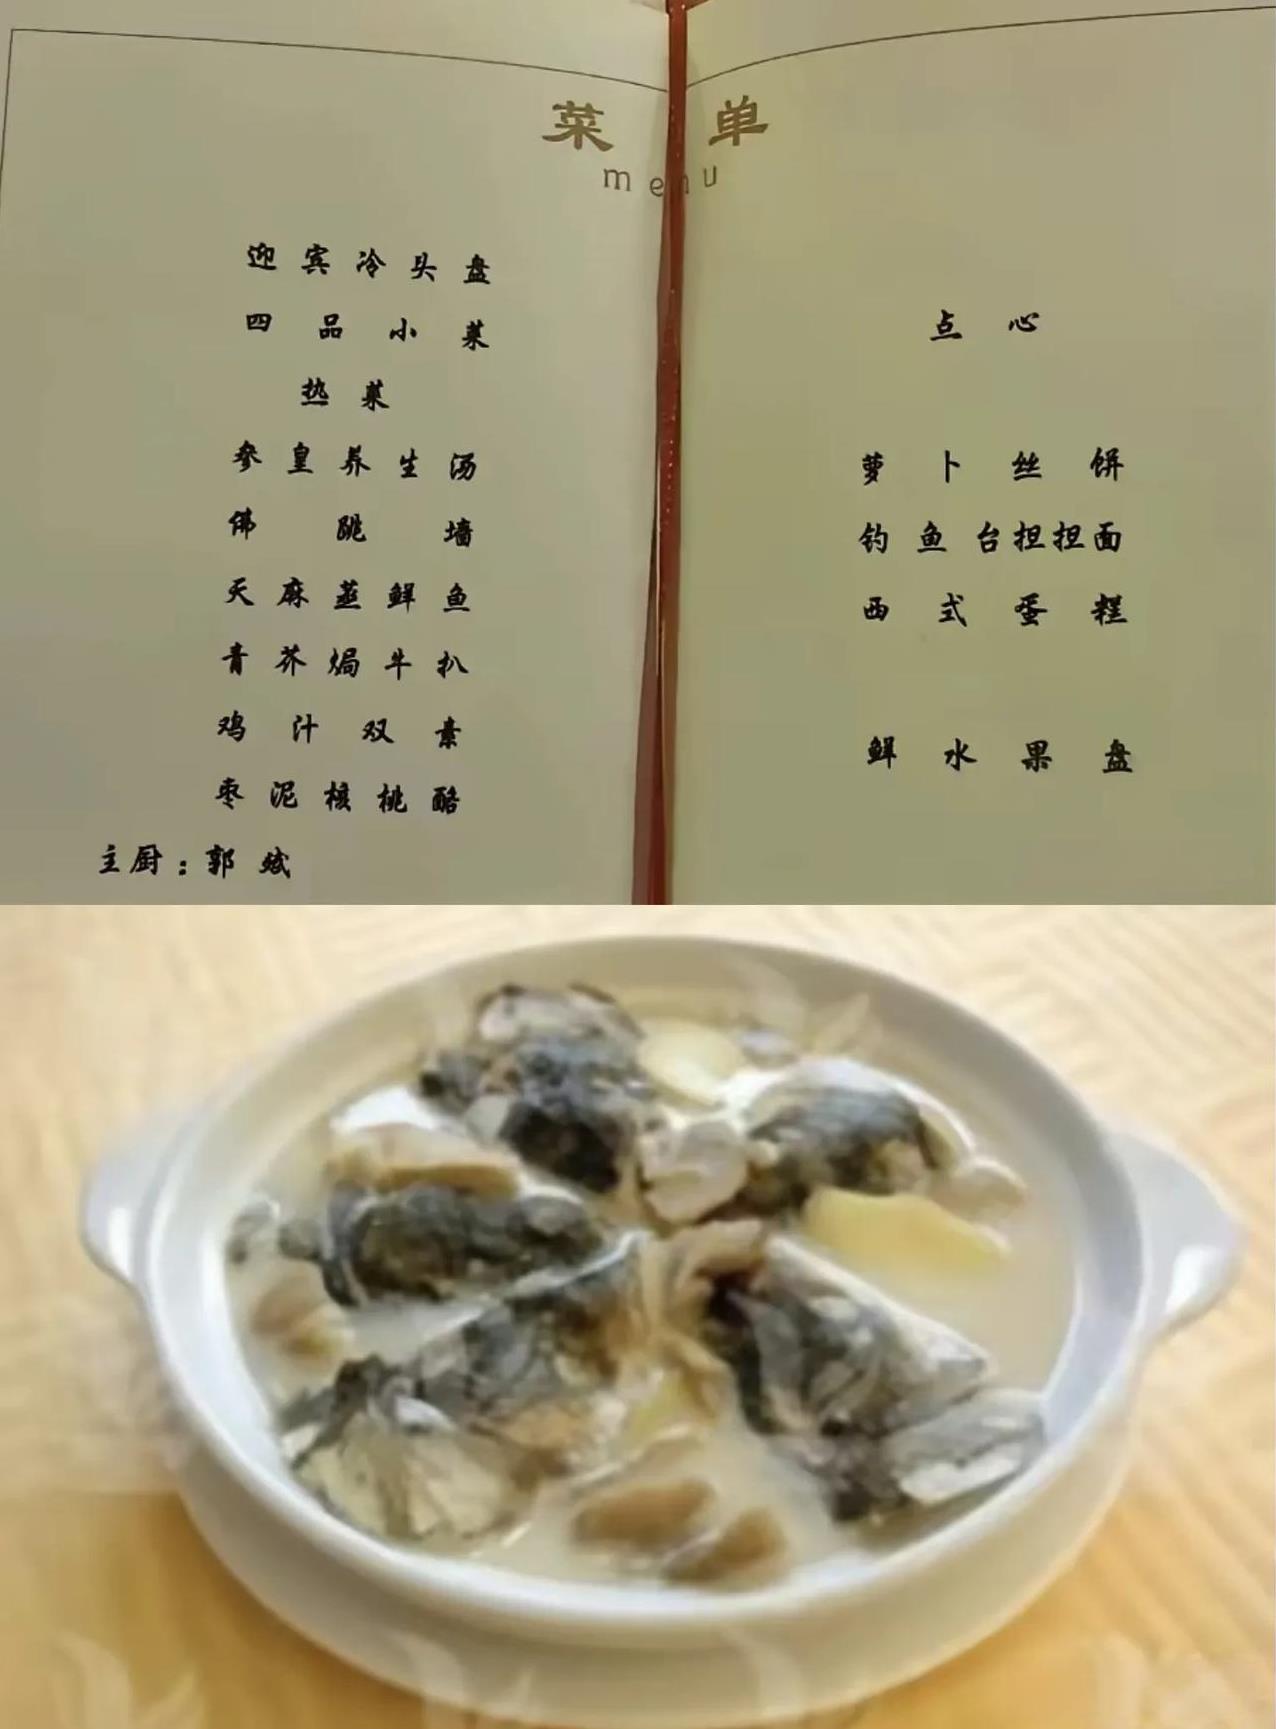 菜单
menu
迎宾冷头盘
四品小菜
热菜
参皇养生汤
佛跳墙
天麻蒸鲜鱼
青芥焗牛扒
鸡汁双素
枣泥核桃酪
主厨:郭斌
点心
萝卜丝饼
钓鱼台担担面
西式蛋糕
鲜水果盘